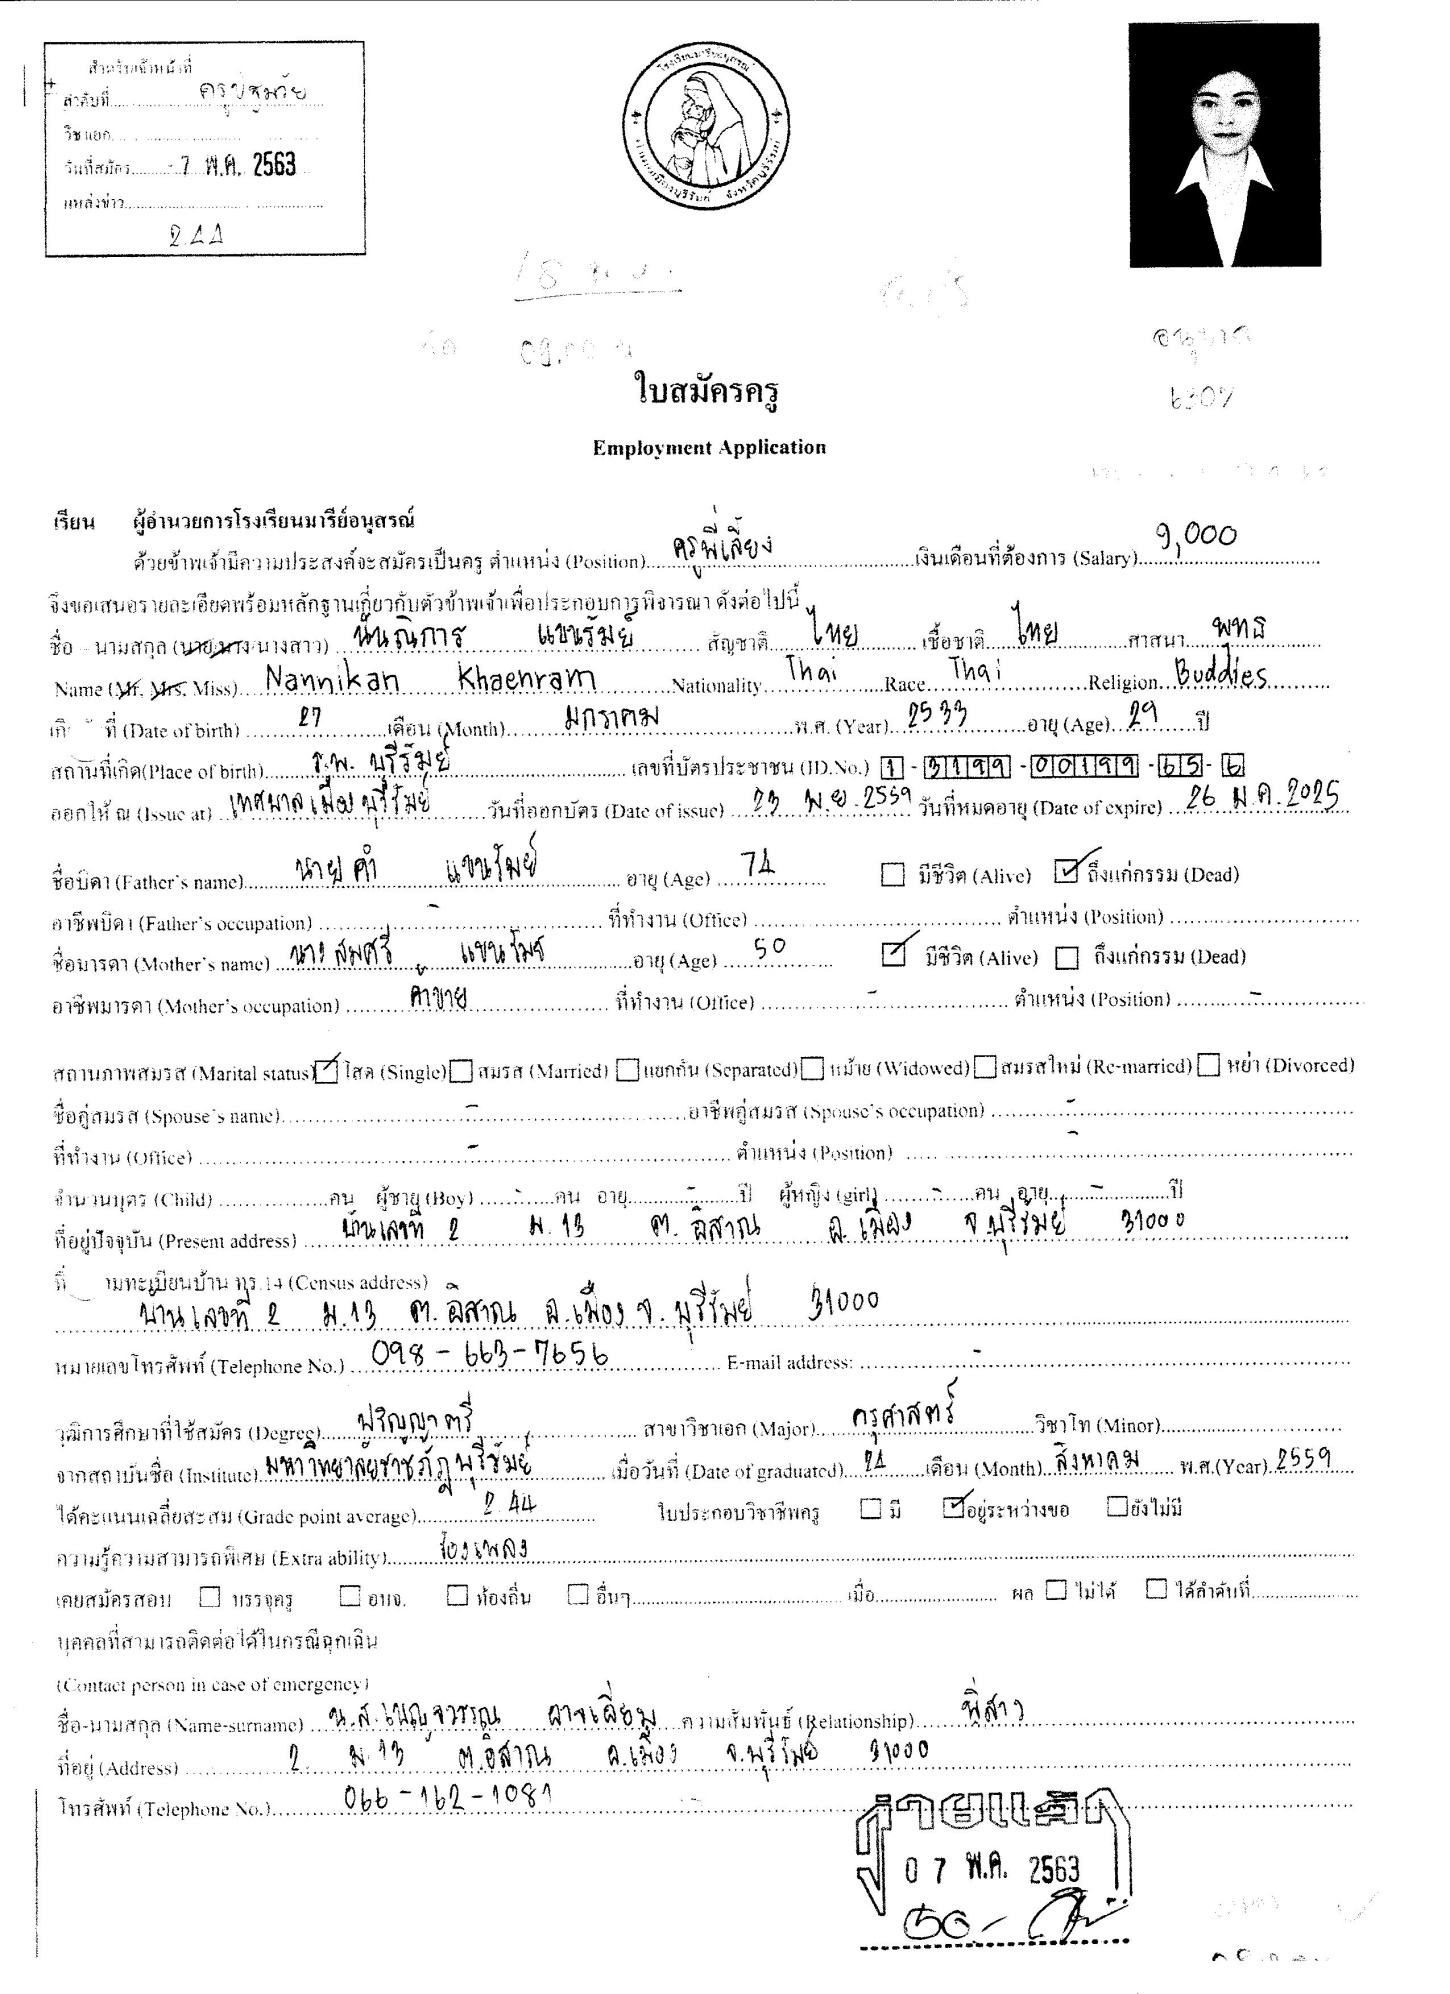 สำหรับเจ้าหน้าที่
ลำดับที่
วิชาเอก
วันที่สมัคร - 7 พ.ค. 2563
แหล่งข่าว
2.44
โรงเรียนมารีย์อนุสรณ์
อำเภอเมืองบุรีรัมย์ จังหวัดบุรีรัมย์
อนุบาล
09.00 น
ใบสมัครครู
Employment Application
เรียน ผู้อำนวยการโรงเรียนมารีย์อนุสรณ์
ด้วยข้าพเจ้ามีความประสงค์จะสมัครเป็นครู ตำแหน่ง (Position) ครูพี่เลี้ยง เงินเดือนที่ต้องการ (Salary) 9,000
จึงขอเสนอรายละเอียดพร้อมหลักฐานเกี่ยวกับตัวข้าพเจ้าเพื่อประกอบการพิจารณา ดังต่อไปนี้
ชื่อ - นามสกุล (นาย/นาง/นางสาว) นันณิการ แขนรัมย์ สัญชาติ ไทย เชื้อชาติ ไทย ศาสนา พุทธ
Name (Mr, Mrs, Miss) Nannikan Khaenram Nationality Thai Race Thai Religion Buddies
เกิ ที่ (Date of birth) 27 เดือน (Month) มกราคม พ.ศ. (Year) 2533 อายุ (Age) 29 ปี
สถานที่เกิด(Place of birth) ร.พ. บุรีรัมย์ เลขที่บัตรประชาชน (ID.No.) 1 - 3199 - 00199 - 65 - 6
ออกให้ ณ (Issue at) เทศบาลเมืองบุรีรัมย์ วันที่ออกบัตร (Date of issue) 23 พ.ย. 2559 วันที่หมดอายุ (Date of expire) 26 ม.ค. 2025
ชื่อบิดา (Father's name) นายคำ แขนรัมย์ อายุ (Age) 74 มีชีวิต (Alive) ถึงแก่กรรม (Dead)
อาชีพบิดา (Father's occupation) - ที่ทำงาน (Office) ตำแหน่ง (Position)
ชื่อมารดา (Mother's name) นางสมศรี แขนรัมย์ อายุ (Age) 50 มีชีวิต (Alive) ถึงแก่กรรม (Dead)
อาชีพมารดา (Mother's occupation) ค้าขาย ที่ทำงาน (Office) - ตำแหน่ง (Position) -
สถานภาพสมรส (Marital status) โสด (Single) สมรส (Married) แยกกัน (Separated) หม้าย (Widowed) สมรสใหม่ (Re-married) หย่า (Divorced)
ชื่อคู่สมรส (Spouse's name) - อาชีพคู่สมรส (Spouse's occupation) -
ที่ทำงาน (Office) - ตำแหน่ง (Position) -
จำนวนบุตร (Child) คน ผู้ชาย (Boy) - คน อายุ - ปี ผู้หญิง (girl) - คน อายุ - ปี
ที่อยู่ปัจจุบัน (Present address) บ้านเลขที่ 2 ม.13 ต. อิสาณ อ.เมือง จ.บุรีรัมย์ 31000
ที่ ามทะเบียนบ้าน ทร.14 (Census address)
บ้านเลขที่ 2 ม.13 ต. อิสาณ อ.เมือง จ. บุรีรัมย์ 31000
หมายเลขโทรศัพท์ (Telephone No.) 098-663-7656 E-mail address: -
วุฒิการศึกษาที่ใช้สมัคร (Degree) ปริญญาตรี สาขาวิชาเอก (Major) ครุศาสตร์ วิชาโท (Minor)
จากสถาบันชื่อ (Institute) มหาวิทยาลัยราชภัฏบุรีรัมย์ เมื่อวันที่ (Date of graduated) 24 เดือน (Month) สิงหาคม พ.ศ.(Year) 2559
ได้คะแนนเฉลี่ยสะสม (Grade point average) 2.44 ใบประกอบวิชาชีพครู มี อยู่ระหว่างขอ ยังไม่มี
ความรู้ความสามารถพิเศษ (Extra ability) ร้องเพลง
เคยสมัครสอบ บรรจุครู อบจ. ท้องถิ่น อื่นๆ เมื่อ ผล ไม่ได้ ได้ลำดับที่
บุคคลที่สามารถติดต่อได้ในกรณีฉุกเฉิน
(Contact person in case of emergency)
ชื่อ-นามสกุล (Name-surname) น.ส.เบญจวรรณ อาจเลี่ยม ความสัมพันธ์ (Relationship) พี่สาว
ที่อยู่ (Address) 2 ม.13 ต.อิสาณ อ.เมือง จ.บุรีรัมย์ 31000
โทรศัพท์ (Telephone No.) 066-162-1081
จ่ายแล้ว
07 พ.ค. 2563